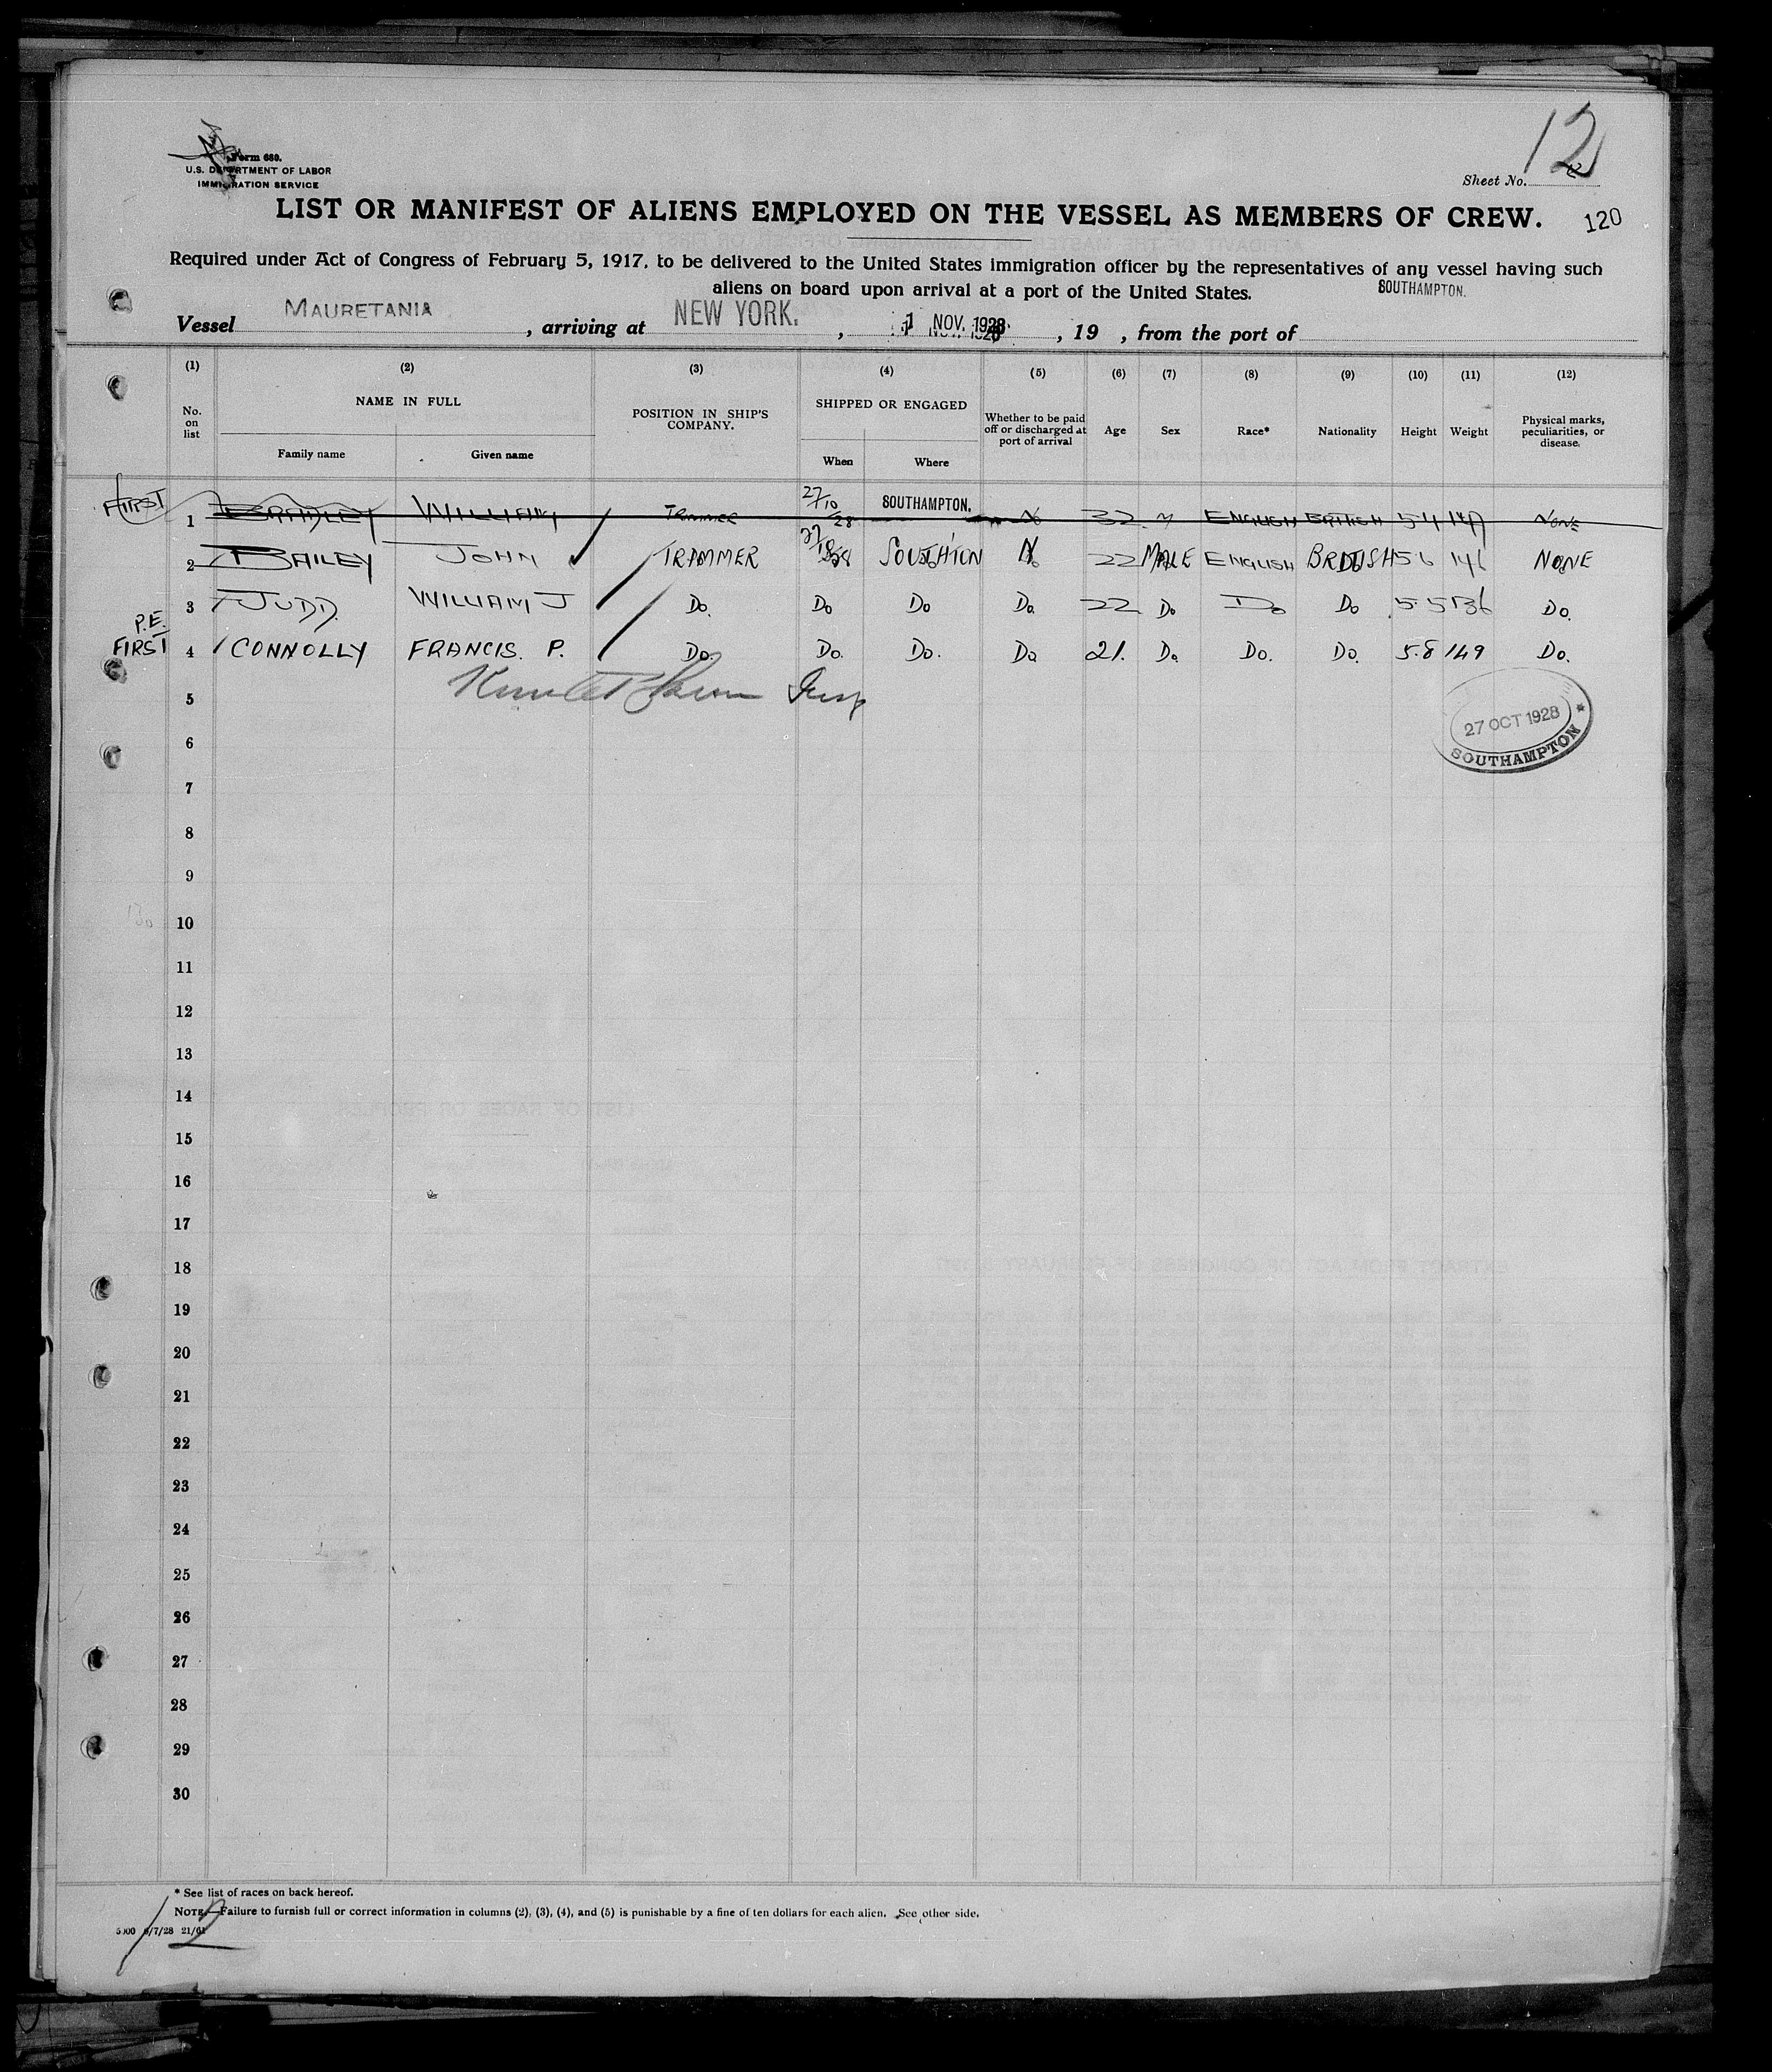 12
Form 680.
U.S. DEPARTMENT OF LABOR
IMMIGRATION SERVICE
Sheet No.
LIST OR MANIFEST OF ALIENS EMPLOYED ON THE VESSEL AS MEMBERS OF CREW.
120
Required under Act of Congress of February 5, 1917, to be delivered to the United States immigration officer by the representatives of any vessel having such
aliens on board upon arrival at a port of the United States.
SOUTHAMPTON.
Vessel MAURETANIA, arriving at NEW YORK., 1 NOV. 1928., 19 , from the port of
(1) (2) (3) (4) (5) (6) (7) (8) (9) (10) (11) (12)
No. on list NAME IN FULL POSITION IN SHIP'S COMPANY. SHIPPED OR ENGAGED Whether to be paid off or discharged at port of arrival Age Sex Race* Nationality Height Weight Physical marks, peculiarities, or disease.
Family name Given name When Where
FIRST 1 BRADLEY WILLIAM TRIMMER 27/10/28 SOUTHAMPTON. No 32 M ENGLISH BRITISH 5-4 147 NONE
2 BAILEY JOHN TRIMMER 27/10/28 SOUTH'TON No 22 MALE ENGLISH BRITISH 5 6 146 NONE
3 JUDD. WILLIAM J Do. Do Do Do. 22 Do Do Do 5.5 136 Do.
P.E.
FIRST 4 CONNOLLY FRANCIS. P. Do. Do. Do. Do 21. Do. Do. Do. 5.8 149 Do.
5
27 OCT 1928
SOUTHAMPTON
6
7
8
9
10
11
12
13
14
15
16
17
18
19
20
21
22
23
24
25
26
27
28
29
30
* See list of races on back hereof.
NOTE.—Failure to furnish full or correct information in columns (2), (3), (4), and (5) is punishable by a fine of ten dollars for each alien. See other side.
12